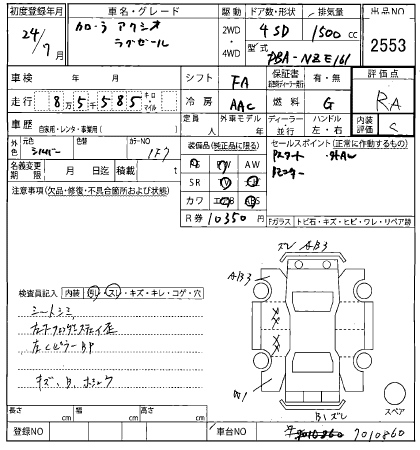 初度登録年月 車名・グレード 駆動 ドア数・形状 排気量 出品NO
24/7月 カローラ アクシオ ラグゼール 2WD・4WD 4SD 1500cc 2553
型式 DBA-NZE161
車検 年 月 シフト FA 保証書 有・無 評価点
走行 8万5千585 キロ・マイル 冷房 AAC 燃料 G RA
車歴 自家用・レンタ・事業用( ) 定員 人 外車モデル 年 ディーラー・並行 ハンドル 左・右 内装評価
外色 元色 シルバー 色替 カラーNO 1F7
装備品(純正品に限る) セールスポイント(正常に作動するもの)
PS PW AW
SR TV
カワ エアB ABS
Pスタート
名義変更期限 月 日迄 積載 t
R券 10350円
注意事項(欠品・修復・不具合箇所および状態)
Fガラス トビ石・キズ・ヒビ・ワレ・リペア跡
ズレ AB3
AB3
検査員記入 内装 ヨゴレ・スレ・キズ・キレ・コゲ・穴
シートシミ
左CピラーBP
キズ、B、
W1
B1ズレ
スペア
長さ cm 幅 cm 高さ cm
登録NO 車台NO 7010860